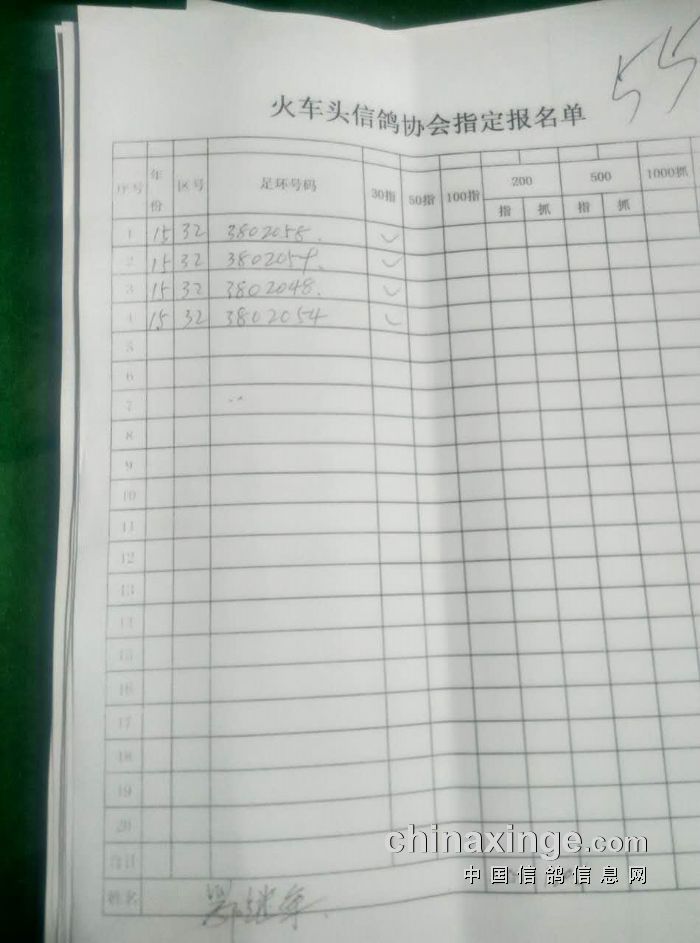 55
火车头信鸽协会指定报名单
序号 年份 区号 足环号码 30指 50指 100指 200 500 1000抓
指 抓 指 抓
1 15 32 3802058.
2 15 32 3802059.
3 15 32 3802048.
4 15 32 3802054
5
6
7
8
9
10
11
12
13
14
15
16
17
18
19
20
合计
姓名
chinaxinge.com
中国信鸽信息网